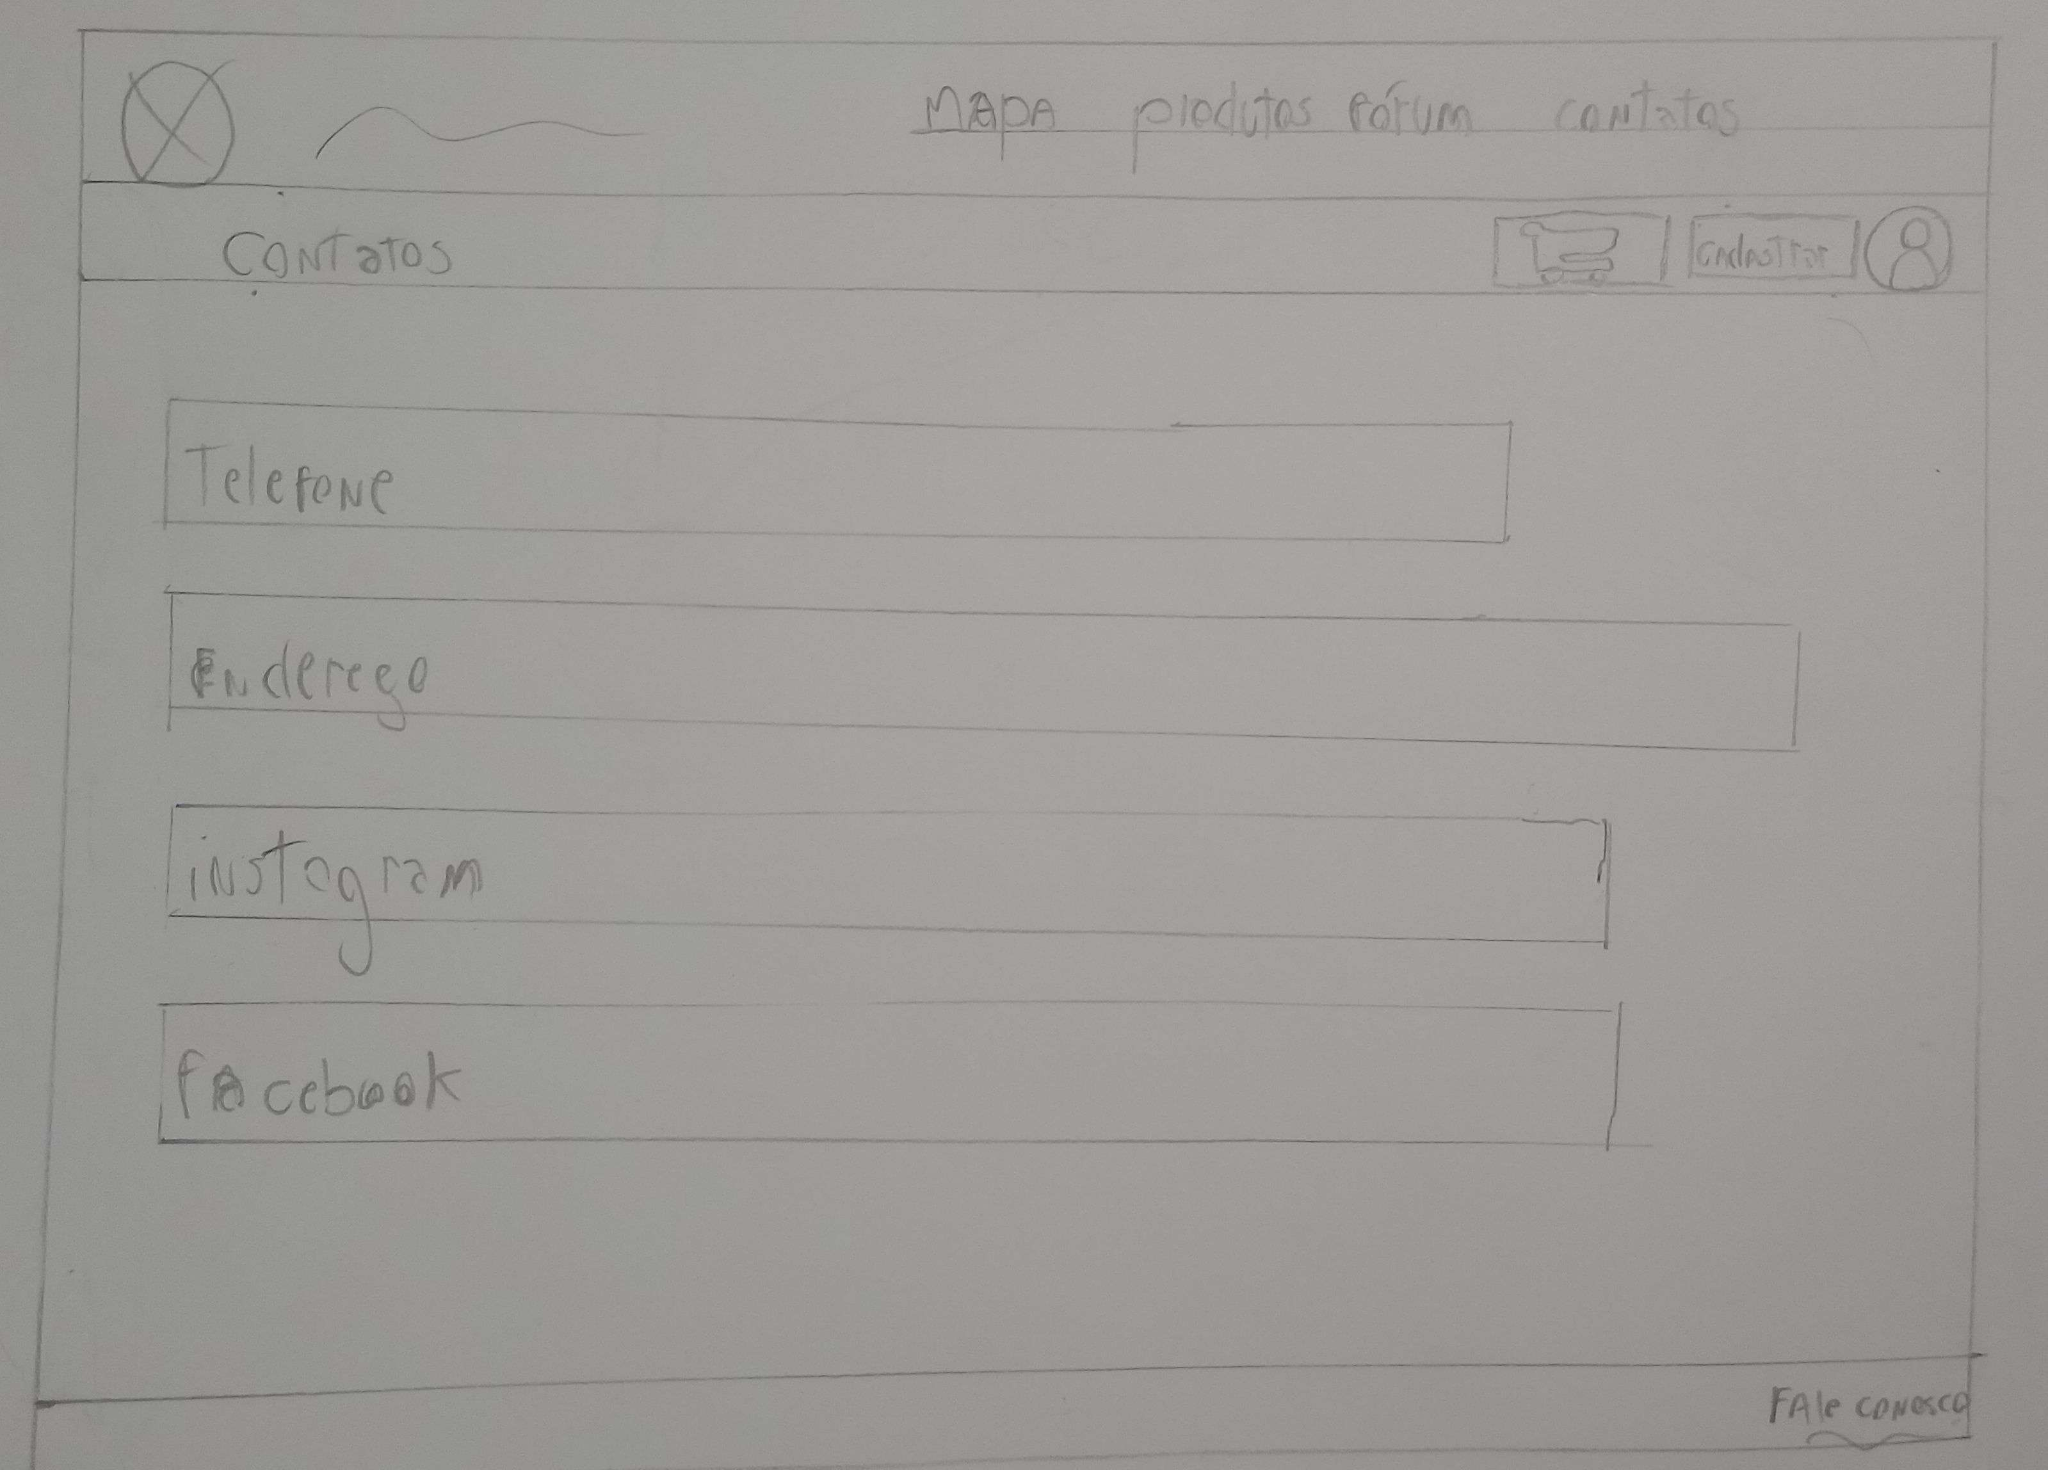 MAPA produtos Fórum contatos
Contatos
cadastrar
Telefone
Endereço
instagram
facebook
FAle conosco